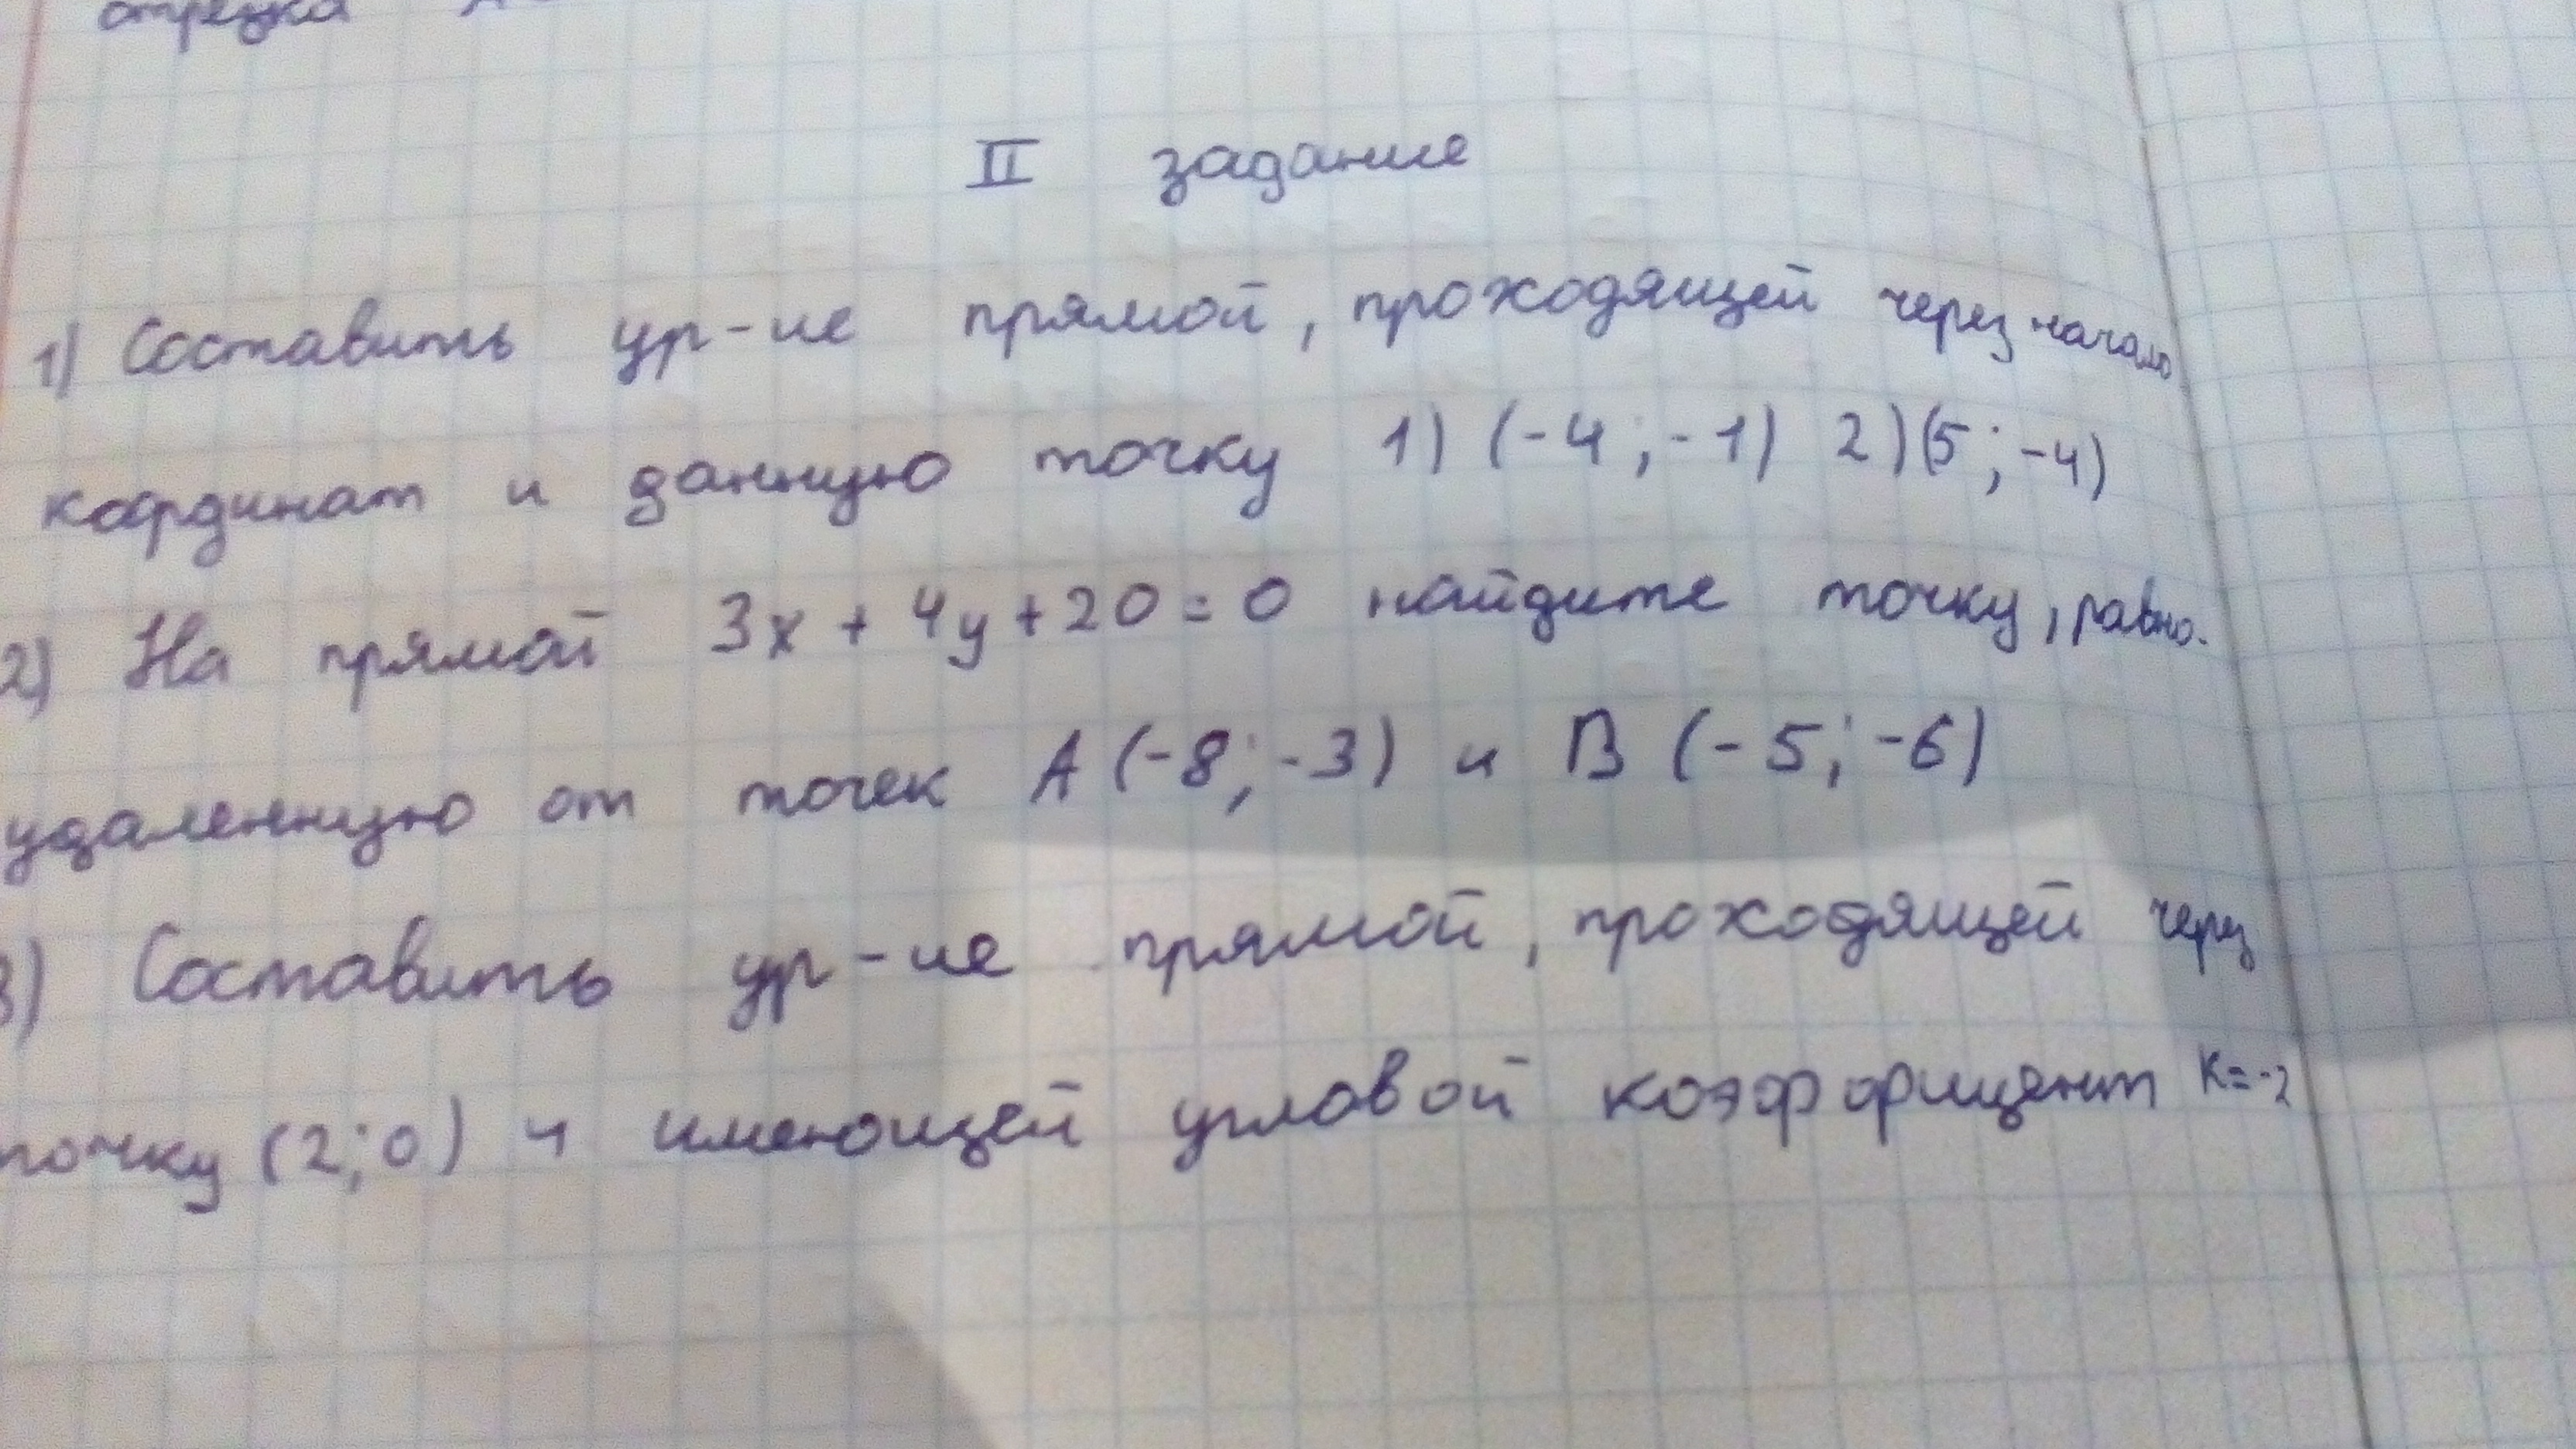 отрезка
II задание
1) Составить ур-ие прямой, проходящей через начало
координат и данную точку 1) (-4; -1) 2) (5; -4)
2) На прямой 3x + 4y + 20 = 0 найдите точку, равно-
удаленную от точек A (-8; -3) и B (-5; -6)
3) Составить ур-ие прямой, проходящей через
точку (2; 0) и имеющей угловой коэффициент K = -2